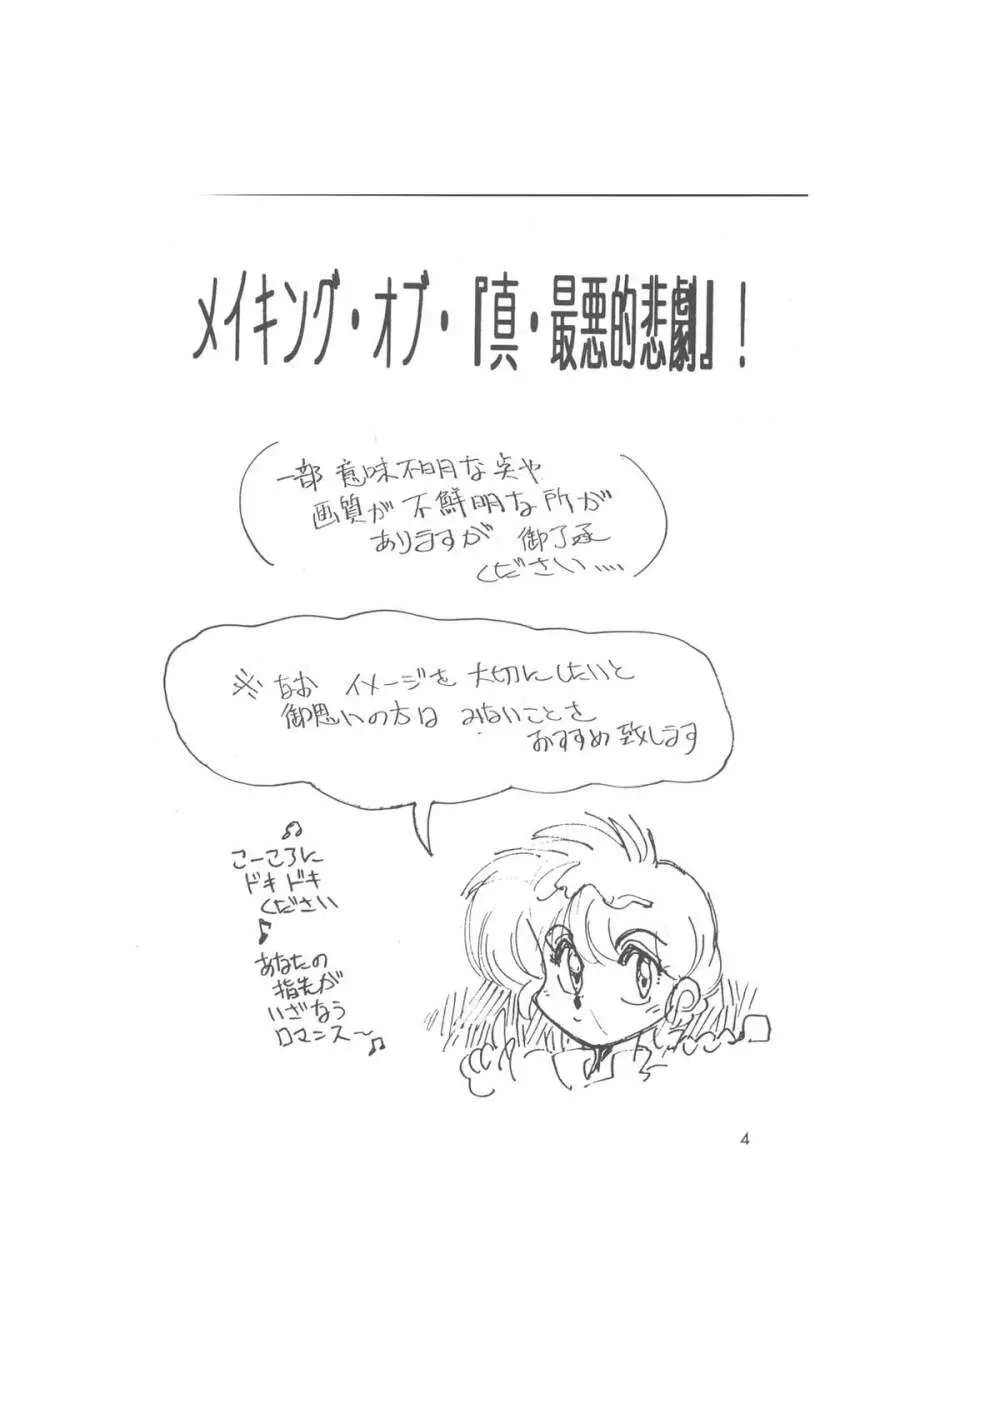 メイキング・オブ・『真・最悪的悲劇』!
一部 意味不明な点や
画質が不鮮明な所が
ありますが 御了承
ください....
※ なお イメージを 大切にしたいと
御思いの方は みないことを
おすすめ致します
♫
こーころに
ドキドキ
ください
♪
あなたの
指先が
いざなう
ロマンス〜
♫
4